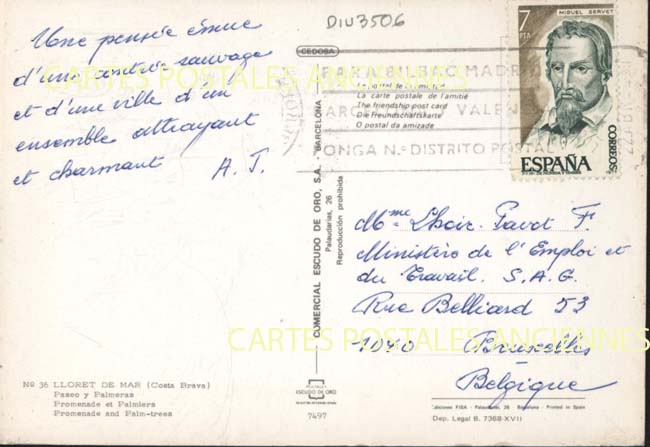 DIV3506
Une pensée émue
d'une contrée sauvage
et d'une ville d'un
ensemble attrayant
et charmant A. J.
CEDOSA
MIGUEL SERVET
7
PTA
ESPAÑA
CORREOS
PARA BILBAO MADRID
VALEN
PONGA N.º DISTRITO POSTAL
La postal de la amistad
La carte postale de l'amitié
The friendship post card
Die freundschaftskarte
O postal da amizade
CARTES POSTALES ANCIENNES
COMERCIAL ESCUDO DE ORO, S.A. - BARCELONA
Palaudarias, 26
Reproducción prohibida
Mme Lhoir. Pavot F.
Ministère de l'Emploi et
du Travail. S.A.G.
Rue Belliard 53
1040 Bruxelles
Belgique
CARTES POSTALES ANCIENNES
Nº 36 LLORET DE MAR (Costa Brava)
Paseo y Palmeras
Promenade et Palmiers
Promenade and Palm-trees
ESCUDO DE ORO
7497
Ediciones FISA - Palaudarias, 26 - Barcelona - Printed in Spain
Dep. Legal B. 7368-XVII